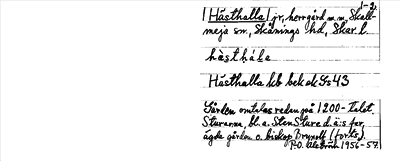 1-2.
Hästhalla, jr, herrgård m.m, Skall-
meja sn, Skånings hd, Skar. l.
hàsthála
Hästhalla kb bek ek Ss43
Gården omtalas redan på 1200-talet.
Sturarna, bl.a. Sten Sture d.ä:s far,
ägde gården o. biskop Brynolf (forts).
P.O. 1956-57.